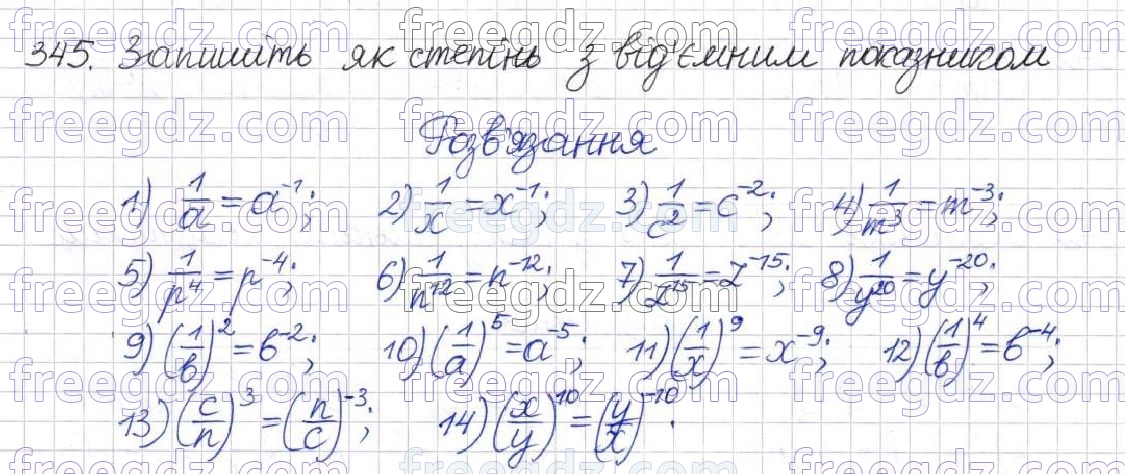 345. Запишіть як степінь з від'ємним показником
Розв'язання
1) 1/a = a⁻¹; 2) 1/x = x⁻¹; 3) 1/c² = c⁻²; 4) 1/m³ = m⁻³;
5) 1/p⁴ = p⁻⁴; 6) 1/n¹² = n⁻¹²; 7) 1/z¹⁵ = z⁻¹⁵; 8) 1/y²⁰ = y⁻²⁰;
9) (1/b)² = b⁻²; 10) (1/a)⁵ = a⁻⁵; 11) (1/x)⁹ = x⁻⁹; 12) (1/b)⁴ = b⁻⁴;
13) (c/n)³ = (n/c)⁻³; 14) (x/y)¹⁰ = (y/x)⁻¹⁰.
freegdz.com